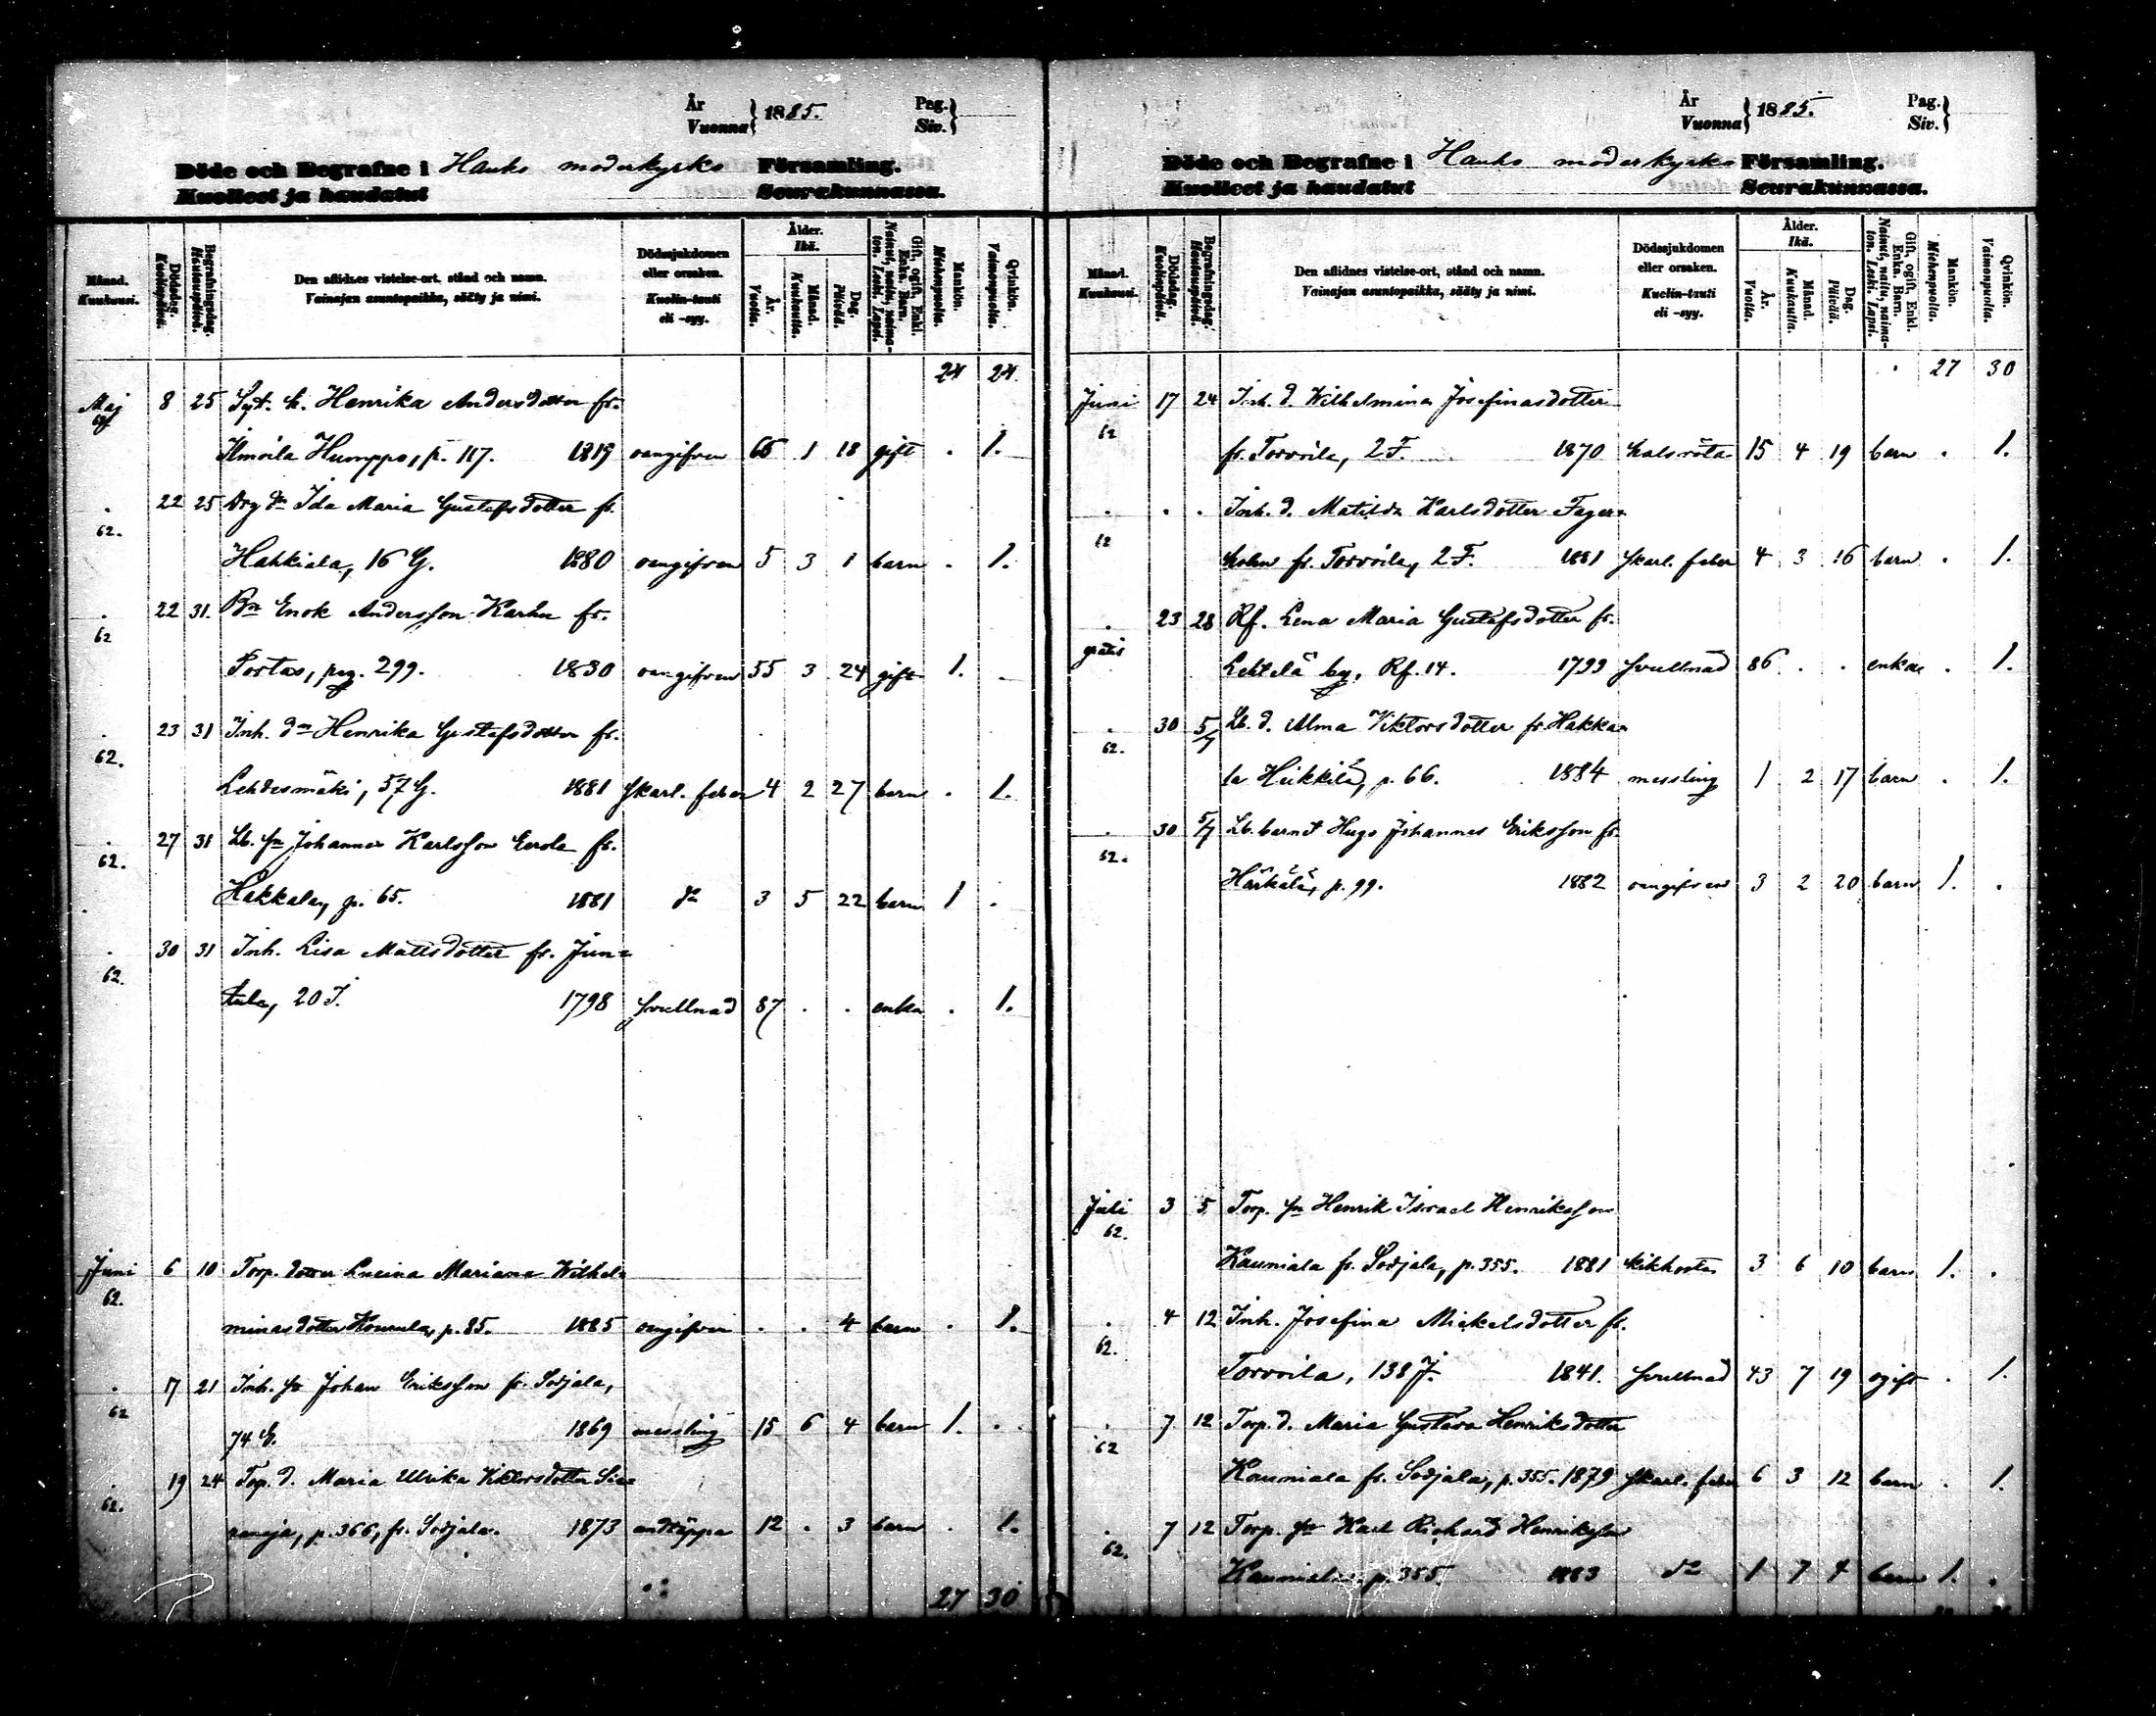 År
Vuonna } 1885.
Pag.
Siv. }
Döde och Begrafne i Hauho moderkyrko Församling.
Kuolleet ja haudatut Seurakunnassa.
Månad. Kuukausi.
Dödsdag. Kuolinpäivä.
Begrafningsdag. Hautauspäivä.
Den aflidnes vistelse-ort, stånd och namn.
Vainajan asuntopaikka, sääty ja nimi.
Dödssjukdomen eller orsaken.
Kuolin-tauti eli -syy.
Ålder. Ikä.
År. Vuotta.
Månad. Kuukautta.
Dag. Päivää.
Gift, ogift, Enkl. Enka. Barn.
Nainut, naitu, naimaton. Leski. Lapsi.
Mankön. Miehenpuolta.
Qvinkön. Vaimonpuolta.
24 24.
Maj 8 25 Syt. h. Henrika Andersdotter fr.
Ilmoila Humppo, p. 117. 1819 oangifven 66 1 18 gift . 1.
. 22 25 Drg dr Ida Maria Gustafsdotter fr.
62.
Hahkiala, 16 G. 1880 oangifven 5 3 1 barn . 1.
. 22 31. Bn Enok Andersson Karhu fr.
62
Portas, pag. 299. 1830 oangifven 55 3 24 gift 1. .
. 23 31 Inh. dr Henrika Gustafsdotter fr.
62.
Lehdesmäki, 57 G. 1881 skarl. feber 4 2 27 barn . 1.
. 27 31 Lb. sn Johannes Karlsson Eerola fr.
62.
Hakkala, p. 65. 1881 do 3 5 22 barn 1 .
. 30 31 Inh. Lisa Mattsdotter fr. Jun=
62.
tula, 20 J. 1798 svullnad 87 . . enka . 1.
Juni 6 10 Torp. dotter Lucina Mariana Wilhel=
62.
minasdotter p. 85. 1885 oangifven . . 4 barn . 1.
. 17 21 Inh. sn Johan Eriksson fr. Sotjala,
62
74 G. 1869 messling 15 6 4 barn 1. .
. 19 24 Torp. d. Maria Ulrika Viktorsdotter
62.
p. 366, fr. Sotjala. 1873 andtäppa 12 . 3 barn . 1.
27 30
År
Vuonna } 1885.
Pag.
Siv. }
Döde och Begrafne i Hauho moderkyrko Församling.
Kuolleet ja haudatut Seurakunnassa.
Månad. Kuukausi.
Dödsdag. Kuolinpäivä.
Begrafningsdag. Hautauspäivä.
Den aflidnes vistelse-ort, stånd och namn.
Vainajan asuntopaikka, sääty ja nimi.
Dödssjukdomen eller orsaken.
Kuolin-tauti eli -syy.
Ålder. Ikä.
År. Vuotta.
Månad. Kuukautta.
Dag. Päivää.
Gift, ogift, Enkl. Enka. Barn.
Nainut, naitu, naimaton. Leski. Lapsi.
Mankön. Miehenpuolta.
Qvinkön. Vaimonpuolta.
27 30
Juni 17 24 Inh. d. Wilhelmina Josefinasdotter
62
fr. Torvoila, 2 F. 1870 halsröta 15 4 19 barn . 1.
. . . Inh. d. Matilda Karlsdotter Fager=
62
holm fr. Torvoila, 2 F. 1881 skarl. feber 4 3 16 barn . 1.
. 23 28 Rf. Lena Maria Gustafsdotter fr.
gratis
Lehtelä by, Rf. 14. 1799 svullnad 86 . . enka . 1.
. 30 5/7 Lb. d. Alma Viktorsdotter fr. Hakka=
62.
la Heikkilä, p. 66. 1884 messling 1 2 17 barn . 1.
. 30 5/7 Lb. barnet Hugo Johannes Eriksson fr.
62.
Härkälä, p. 99. 1882 oangifven 3 2 20 barn 1. .
Juli 3 5 Torp. sn Henrik Israel Henriksson
62.
Kauniala fr. Sotjala, p. 355. 1881 kikhosta 3 6 10 barn 1. .
. 4 12 Inh. Josefina Mickelsdotter fr.
62.
Torvoila, 138 J. 1841. svullnad 43 7 19 ogift . 1.
. 7 12 Torp. d. Maria Gustava Henriksdotter
62
Kauniala fr. Sotjala, p. 355. 1879 skarl. feber 6 3 12 barn . 1.
. 7 12 Torp. sn Karl Richard Henriksson
62.
Kauniala p. 355. 1883 do 1 7 4 barn 1. .